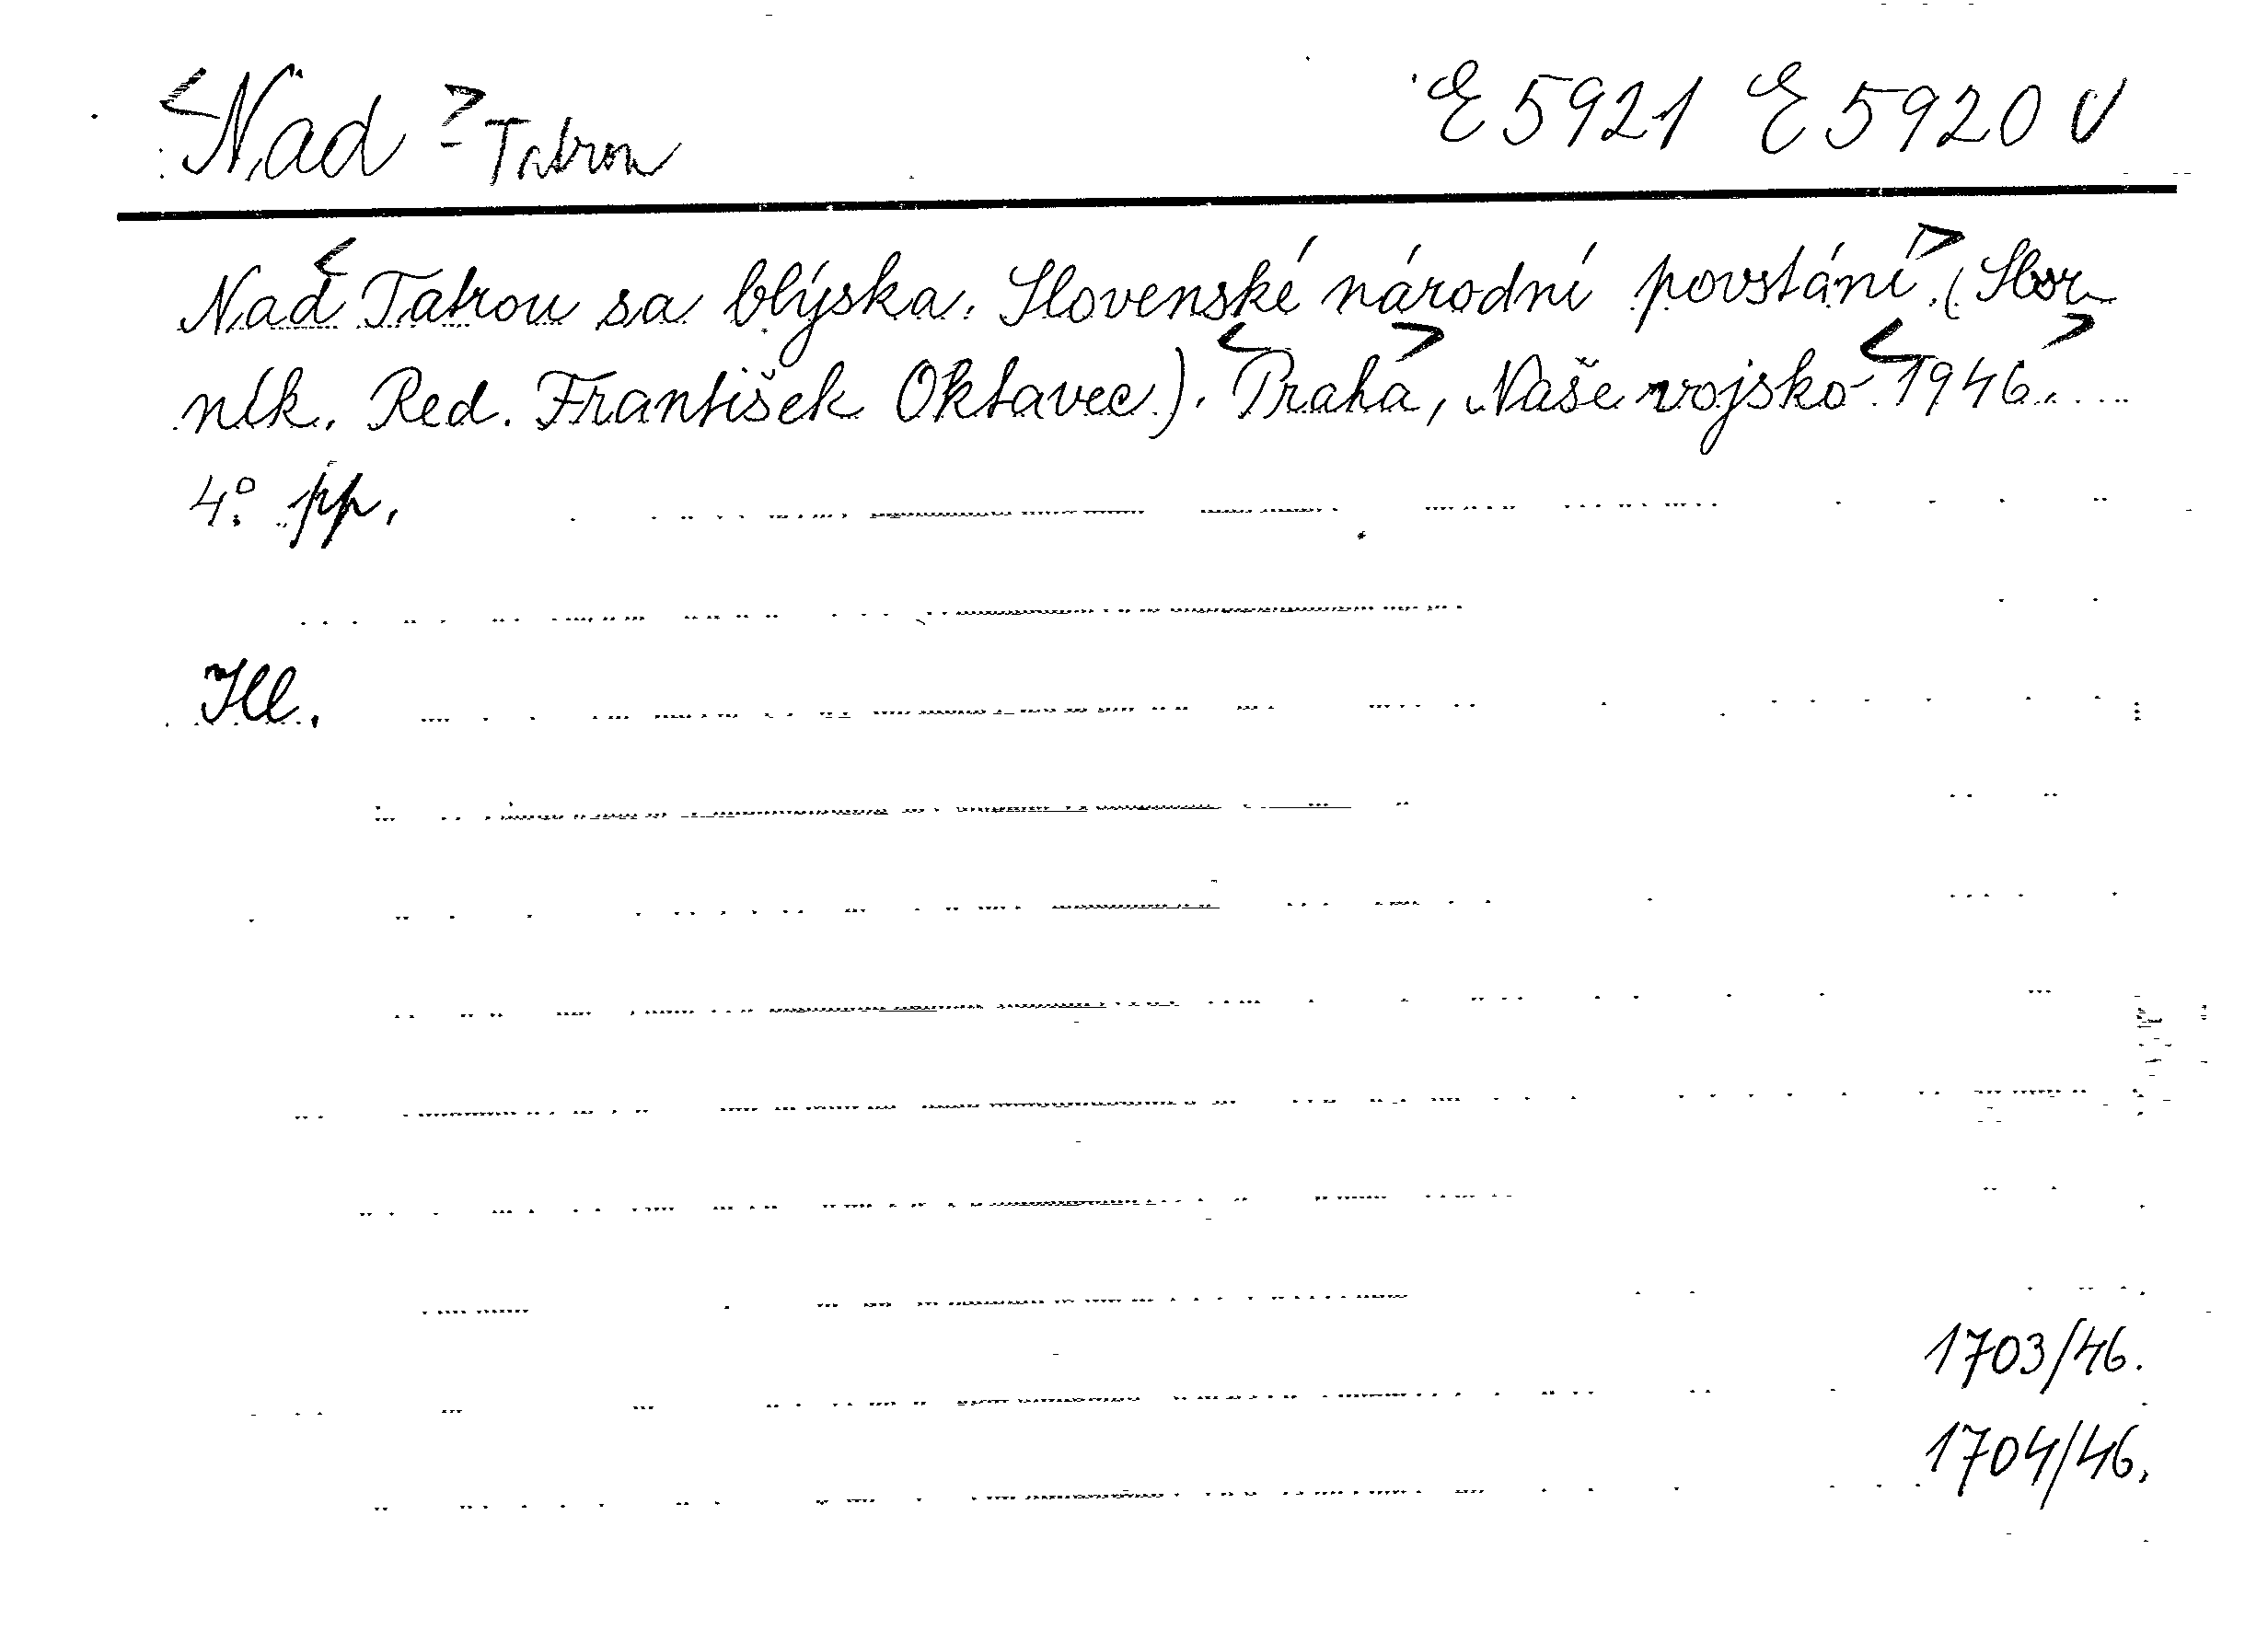 <Nad> - Tatrou E 5921 E 5920 V
Nad <Tatrou sa blýska. Slovenské národní povstání>. (Sbor-
ník. Red. František Oktavec). <Praha>, Naše vojsko <1946>.
4° pp.
Ill.
1703/46.
1704/46.